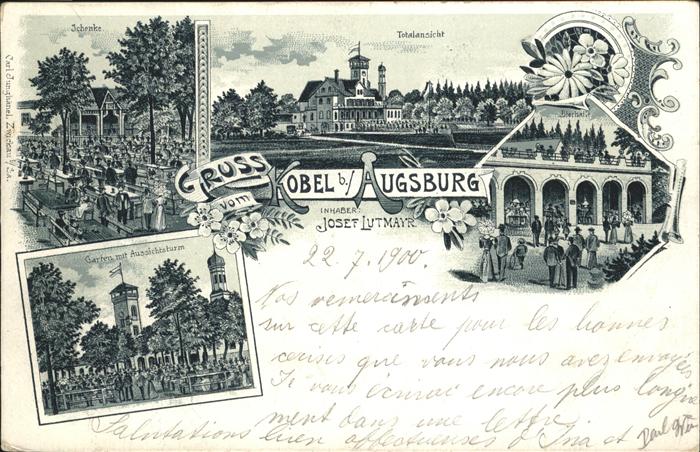 Schenke
Totalansicht
Bierhalle
Carl Junghänel, Zwickau i/Sa.
GRUSS
vom
KOBEL b./AUGSBURG
INHABER:
JOSEF LUTMAYR.
Garten mit Aussichtsturm
22.7.1900.
Nos remerciments
sur cette carte pour les bonnes
cerises que vous nous avez envoyées
Je vous écrirai encore plus longue
ment dans une lettre
Salutations bien affectueuses d'Ina et Paul